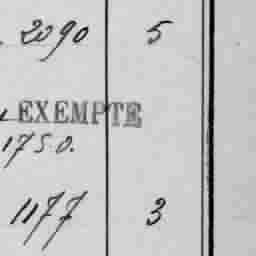 2090 5
EXEMPTE
1750.
1177 3